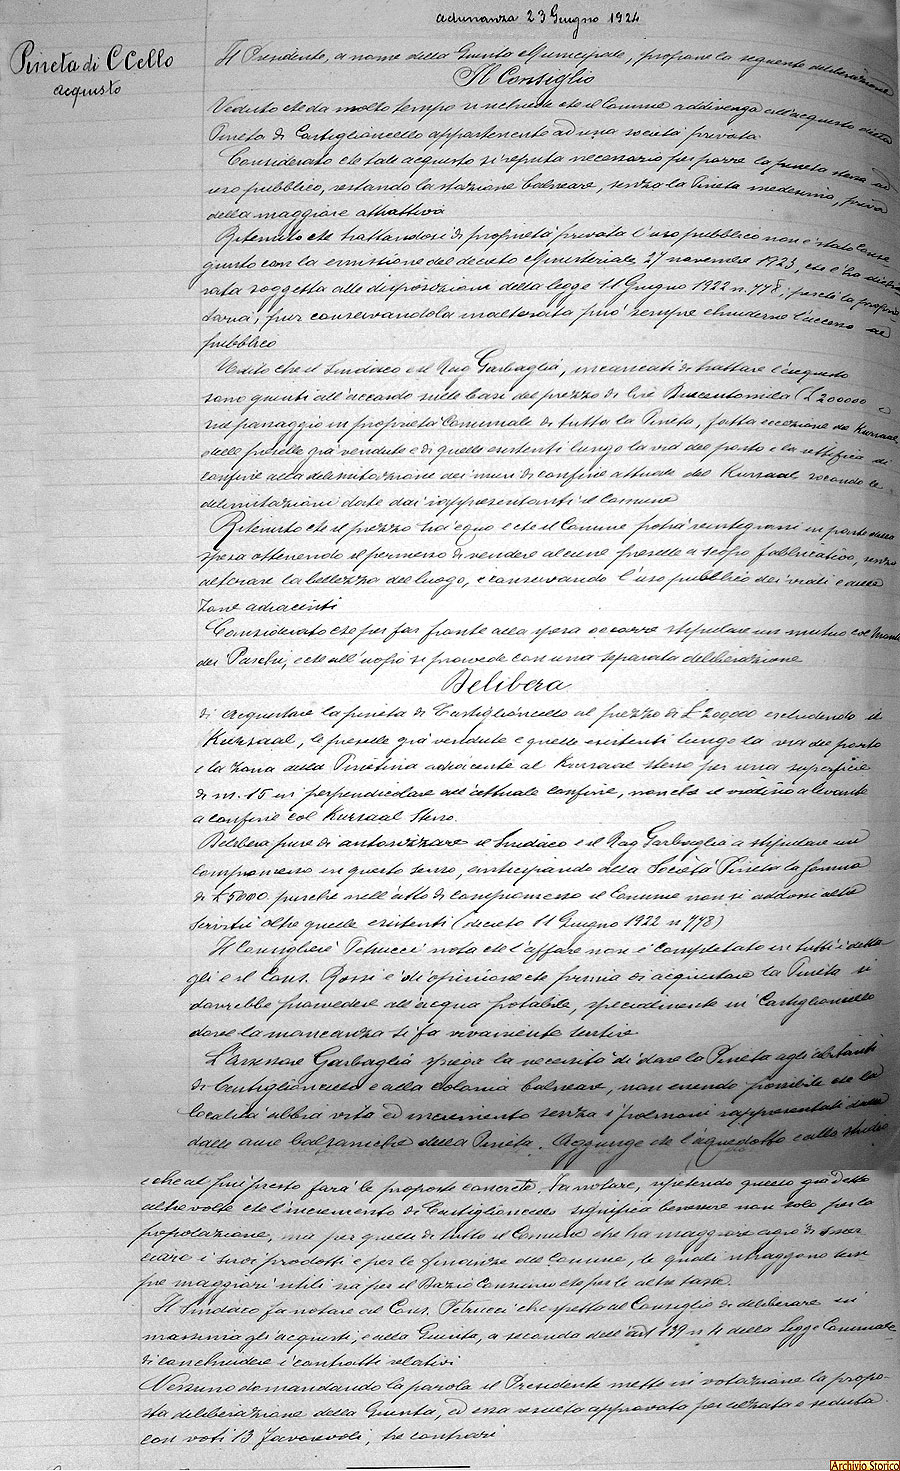 adunanza 23 Giugno 1924
Pineta di C Cello
acquisto
Il Presidente, a nome della Giunta Municipale, propone la seguente deliberazione
Il Consiglio
Veduto che da molto tempo si richiede che il Comune addivenga all'acquisto della
Pineta di Castiglioncello appartenente ad una società privata
Considerato che tale acquisto si reputa necessario per porre la pineta stessa ad
uso pubblico, restando la stazione balneare, senza la Pineta medesima, priva
della maggiore attrattiva
Ritenuto che trattandosi di proprietà privata l'uso pubblico non è stato conse
guito con la emissione del decreto Ministeriale 27 novembre 1923, che l'ha dichia
rata soggetta alle disposizioni della legge 11 Giugno 1922 n. 778, perchè la proprie
taria, pur conservandola inalterata può sempre chiuderne l'accesso al
pubblico
Udito che il Sindaco e il Rag Garbaglia, incaricati di trattare l'acquisto
sono giunti all'accordo sulle basi del prezzo di lire Duecentomila (L 200000 e
sul passaggio in proprietà Comunale di tutta la Pineta, fatta eccezione del Kursaal,
delle preselle già vendute e di quelle esistenti lungo la via del porto e la rettifica di
confine alla delimitazione dei muri di confine attuale del Kursaal secondo le
delimitazioni date dai rappresentanti il Comune
Ritenuto che il prezzo sia equo e che il Comune potrà reintegrarsi in parte della
spesa ottenendo il permesso di vendere alcune preselle a scopo fabbricativo, senza
alterare la bellezza del luogo, e conservando l'uso pubblico dei viali e delle
zone adiacenti
Considerato che per far fronte alla spesa occorre stipulare un mutuo col Monte
dei Paschi, e che all'uopo si provvede con una separata deliberazione
Delibera
di acquistare la pineta di Castiglioncello al prezzo di L 200,000 escludendo il
Kursaal, le preselle già vendute e quelle esistenti lungo la via del porto
e la zona della Pinetina adiacente al Kursaal stesso per una superficie
di m. 15 in perpendicolare all'attuale confine, nonchè il vialino a levante
a confine col Kursaal stesso.
Delibera pure di autorizzare il Sindaco e il Rag Garbaglia a stipulare un
compromesso in questo senso, anticipando alla Società Pineta la somma
di L 5000 purchè nell'atto di compromesso il Comune non si addossi altre
servitù oltre quelle esistenti (decreto 11 Giugno 1922 n 778)
Il Consigliere Petrucci nota che l'affare non è completato in tutti i detta
gli e il Cons. Rossi è di opinione che prima di acquistare la Pineta si
dovrebbe provvedere all'acqua potabile, specialmente in Castiglioncello
dove la mancanza si fa vivamente sentire
L'assessore Garbaglia spiega la necessità di dare la Pineta agli abitanti
di Castiglioncello e alla colonia balneare, non essendo possibile che la
località abbia vita ed incremento senza i polmoni rappresentati dalla
dalle aure balsamiche della Pineta. Aggiunge che l'acquedotto è allo studio
e che al più presto farà le proposte concrete. Fa notare, ripetendo quello già detto
altre volte che l'incremento di Castiglioncello significa benessere non solo per la
popolazione, ma per quelle di tutto il Comune che ha maggiore agio di smer
ciare i suoi prodotti e per le finanze del Comune, le quali ritraggono sem
pre maggiori utili sia per il Dazio Consumo che per le altre tasse.
Il Sindaco fa notare al Cons. Petrucci che spetta al Consiglio di deliberare in
massima gli acquisti, e alla Giunta, a seconda dell'art 139 n 4 della Legge Comunale
di conchiudere i contratti relativi
Nessuno domandando la parola il Presidente mette in votazione la propo-
sta deliberazione della Giunta, ed essa resulta approvata per alzata e seduta
con voti 13 favorevoli, tre contrari
Archivio Storico